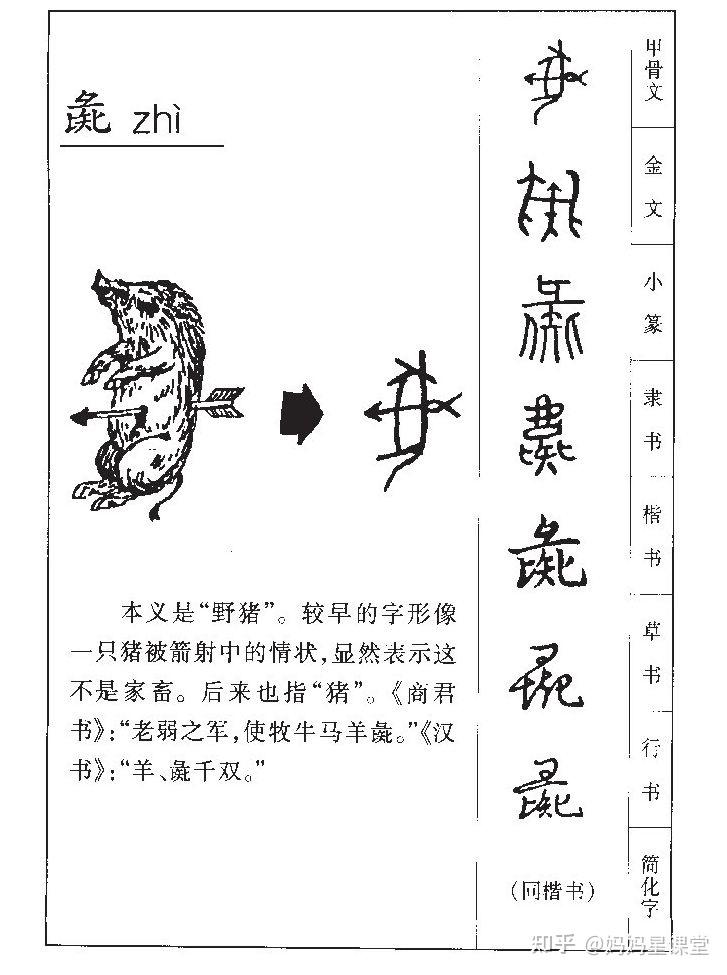 彘 zhì
本义是“野猪”。较早的字形像
一只猪被箭射中的情状,显然表示这
不是家畜。后来也指“猪”。《商君
书》:“老弱之军,使牧牛马羊彘。”《汉
书》:“羊、彘千双。”
甲骨文
金文
小篆
隶书
彘
楷书
彘
草书
彘
行书
彘
简化字
(同楷书)
知乎 @妈妈星课堂